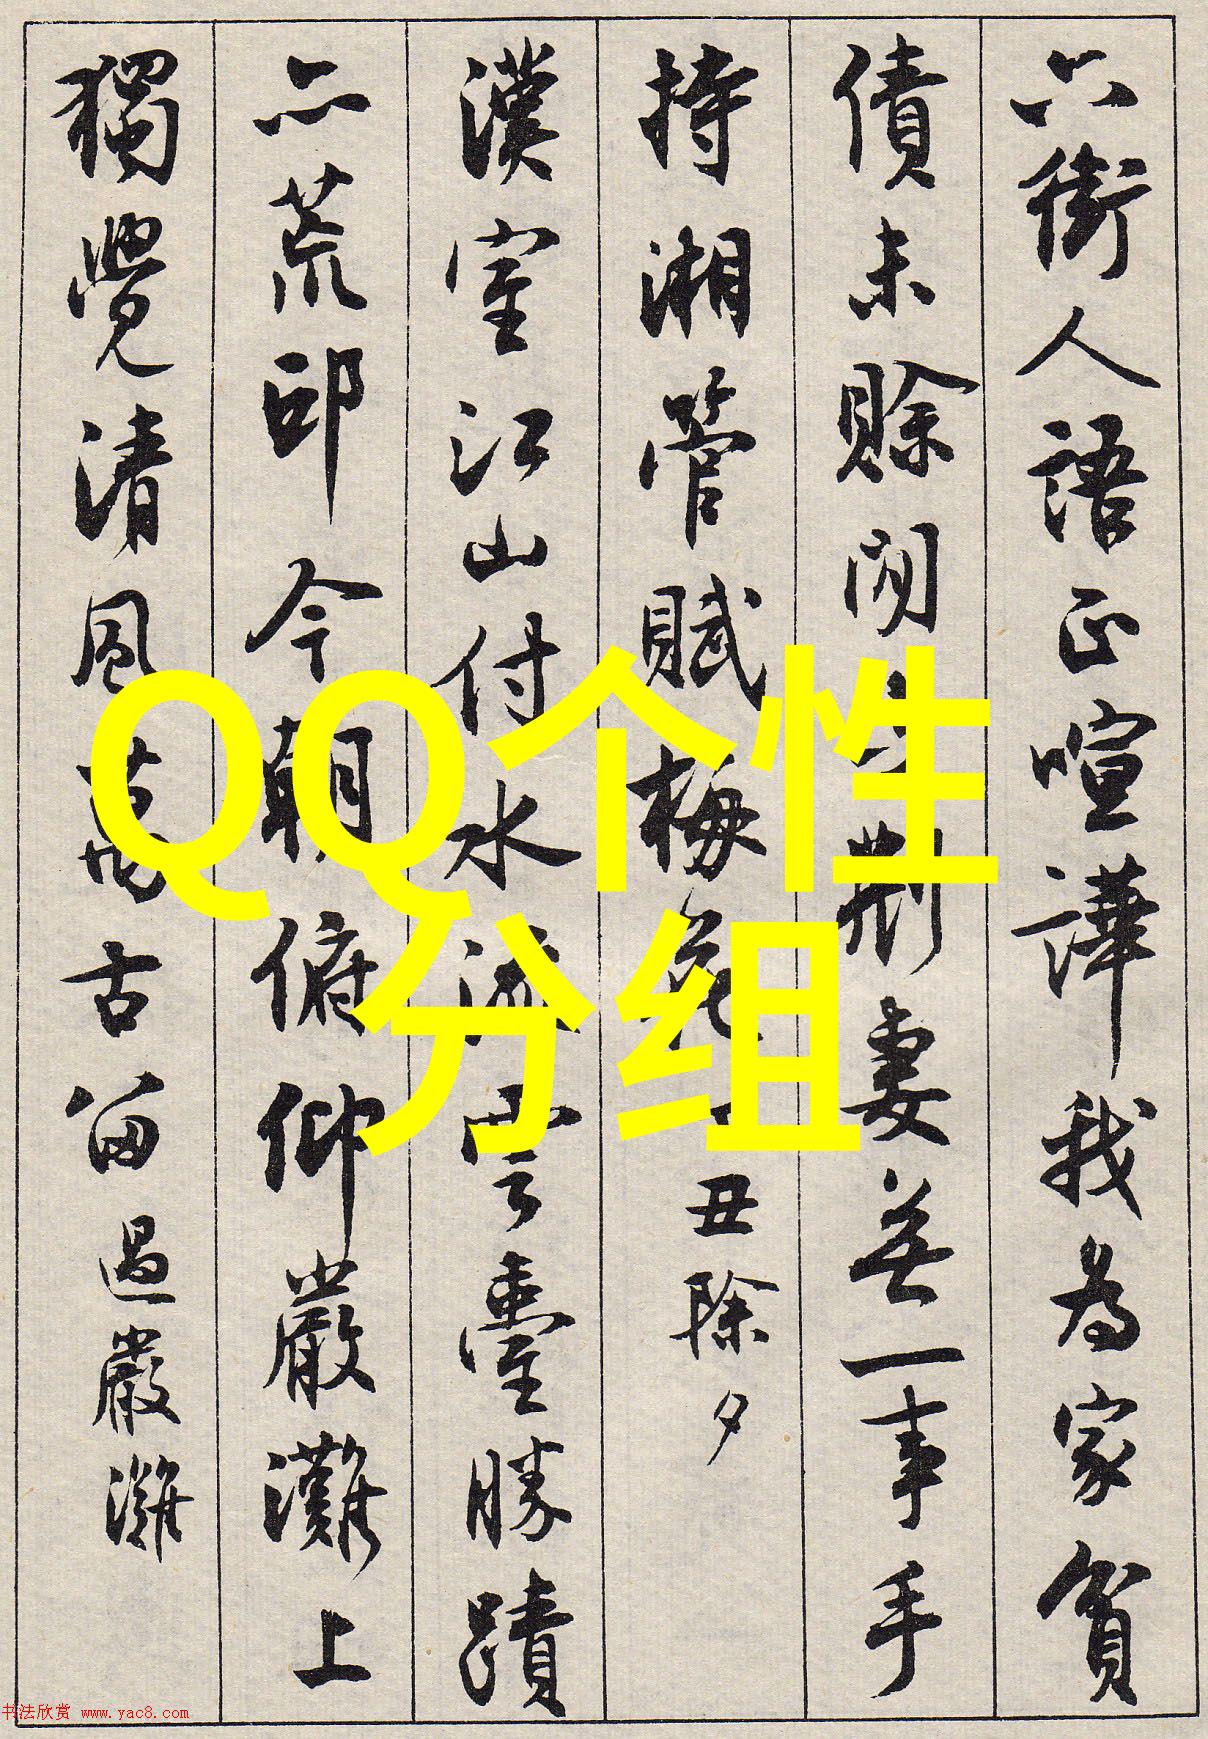 六街人語正喧譁我為家貧
債未賒閒與荊妻無一事手
持湘管賦梅花丑除夕
漢室江山付水流雲臺勝蹟
亦荒邱今朝俯仰嚴灘上
獨覺清風萬古留過嚴灘
QQ个性
分组
书法欣赏 www.yac8.com